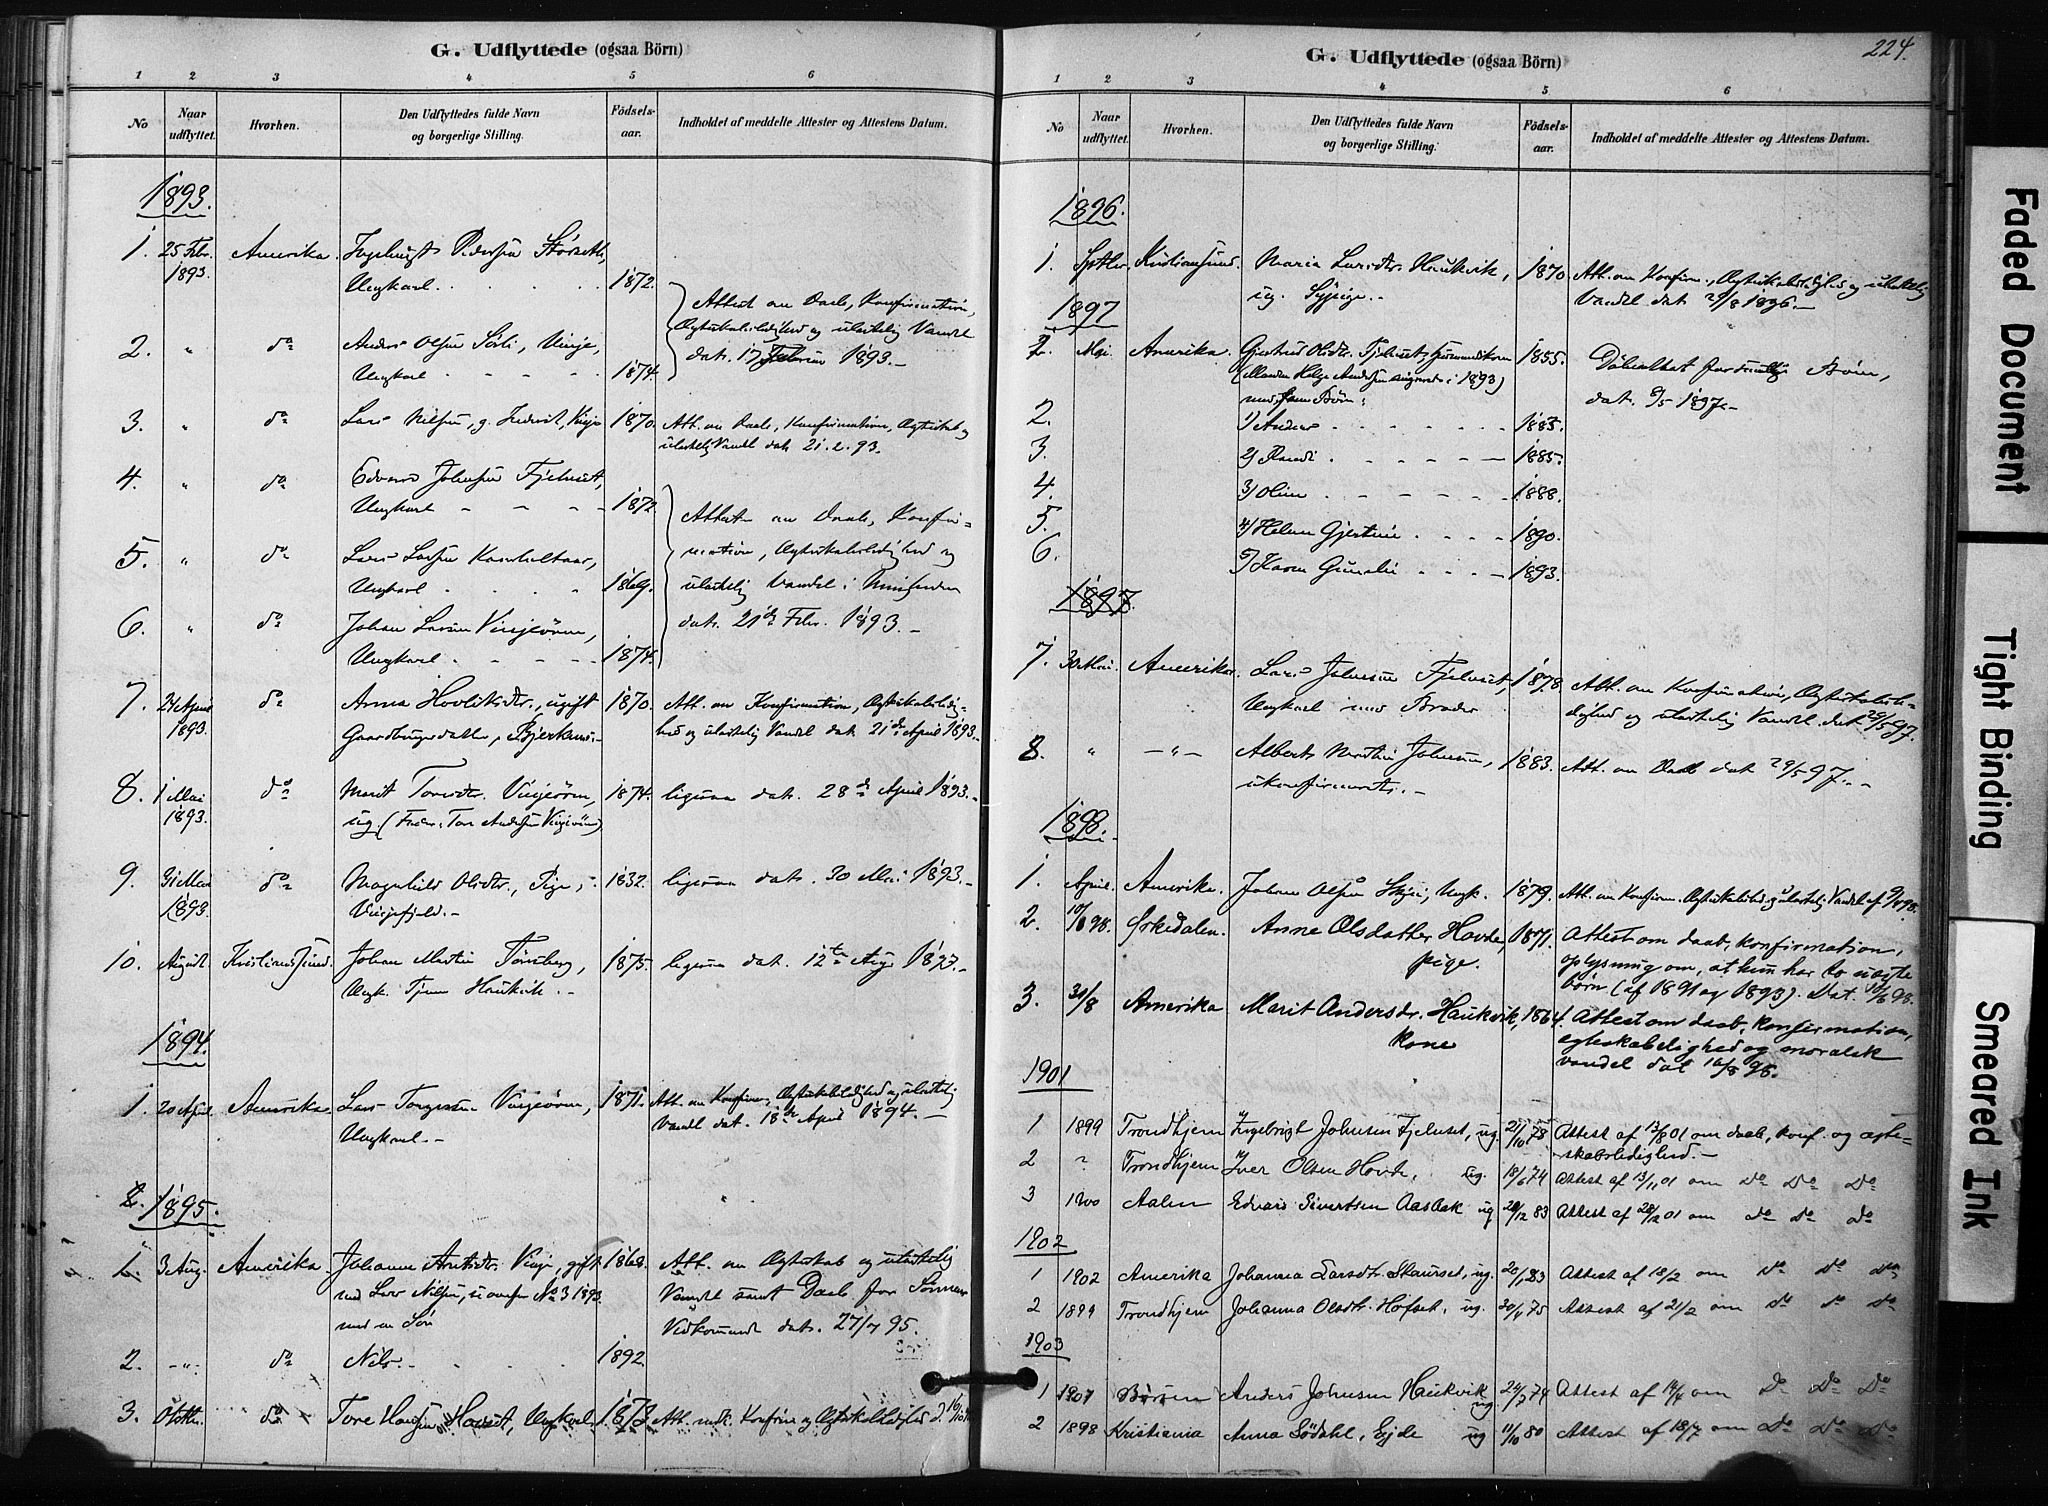 G. Udflyttede (ogsaa Börn)
1 2 3 4 5 6
No
Naar udflyttet.
Hvorhen.
Den Udflyttedes fulde Navn og borgerlige Stilling.
Födsels-aar.
Indholdet af meddelte Attester og Attestens Datum.
1893.
1. 25 Febr. 1893. Amerika. Pedersen Störseth,
Ungkarl . . . . . 1872.
Attest om Daab, Konfirmation,
Ægteskabsledighed og ulastelig Vandel
dat. 17 Februar 1893.-
2. " do Anders Olsen Sörli, Vinje,
Ungkarl - - - - 1874.
3. " do Lars Nilsen, g. Vinje 1870. Att. om Daab, Konfirmation, Ægteskab og
ulastelig Vandel dat. 21.2.93.
4. " do Edvard Johnsen Fjelnset,
Ungkarl - - - - 1872.
Attester om Daab, Konfir-
mation, Ægteskabsledighed og
ulastelig Vandel i Menigheden
dat. 21de Febr. 1893.-
5. " do Lars Larsen
Ungkarl . . . . 1869.
6. " do Johan Larsen Vinjeören,
Ungkarl . - - - 1874.
7. 24 April 1893. do Anna ugift 1870. Att. om Konfirmation, Ægteskabsledig-
Gaardbrugerdatter, hed og ulastelig Vandel dat. 21de April 1893.-
8. 1 Mai 1893. do Marit Toresdtr. Vinjeören, 1874. ligesaa dat. 28de April 1893.-
ug. (Fader: Tore Andersen Vinjeören)
9. 31 Mai 1893. do Magnhild Olsdtr., Pige, 1832. ligesaa dat. 30 Mai 1893.-
Vinjefjeld.-
10. August Kristianssund. Johan Martin 1875. ligesaa dat. 12te Aug. 1893.-
Ungk. Tjen. Haukvik.-
1894.
1. 20 April Amerika. Lars Vinjeören, 1871. Att. om Konfirm. Ægteskabsledighed og ulastelig
Ungkarl.- Vandel dat. 18de April 1894.-
1895.
1. 3 Aug. Amerika. Johanna Vinje, gift 1868. Att. om Ægteskab og ulastelig
med Lars Nilsen, se ovenfor No 3 1893. Vandel samt Daab for Sönnen
med en Sön Vedkommende dat. 27/7 95.
2. -"- do Nils.- . . . 1892.
3. Oktbr. do Tore Ungkarl. 1873 Att. Konfirm. og Ægteskabsledighed
G. Udflyttede (ogsaa Börn)
224.
1 2 3 4 5 6
No
Naar udflyttet.
Hvorhen.
Den Udflyttedes fulde Navn og borgerlige Stilling.
Födsels-aar.
Indholdet af meddelte Attester og Attestens Datum.
1896.
1. Septbr. Kristianssund. Maria Larsdtr. Haukvik, 1870. Att. om Konfirm., Ægteskabsledighed og ulastelig
ug. Sypige.- Vandel dat. 29/8 1896.-
1897
Mai. Amerika. Gjertrud Olsdtr. Fjelnset, Husmandskone 1855. Daabsattest for samtlige Börn,
(Manden Helge Andersen emigrerede i 1893) dat. 8/5 1897.-
med fem Börn:
2. 1) Anders - - - - 1883.
3. 2) Randi . - - - - 1885.
4. 3) Oline . - - - - 1888.
5. 4) Helene Gjertine . . . - 1890.
6. 5) Karen Gunelie . . . - 1893.
1897.
7. 30 Mai. Amerika. Lars Johnsen Fjelnset, 1878. Att. om Konfirmation, Ægteskabsle-
Ungkarl med Broder dighed og ulastelig Vandel dat. 29/5 97.
8. " -"- Albert Martin Johnsen, 1883. Att. om Daab dat 29/5 97.-
ukonfirmeret.-
1898.
1. April. Amerika. Johan Olsen Ungk. 1879. Att. om Konfirm. Ægteskabsled. og ulastelig Vandel af 9/4 98.
2. 10/6 98. Örkedalen. Anne Olsdatter Hovde, 1871. Attest om daab, konfirmation,
pige. oplysning om, at hun har to uægte
börn (af 1891 og 1893). Dat. 10/6 98.
3. 31/8 Amerika Marit Andersdr. Haukvik, 1864. Attest om daab, konfirmation,
kone egteskabelighed og moralsk
vandel dat 16/8 98.
1901
1 1899 Trondhjem Ingebrigt Johnsen Fjelnset, ug. 27/10 78 Attest af 13/8 01 om daab, konf. og ægte-
skabsledighed.-
2 ? Trondhjem Iver Olsen Hovde, ug. 18/6 74 Attest af 13/11 01 om do do do
3 1900 Aalen Edvard Sivertsen Aasbak ug 28/12 83 Attest af 28/2 01 om do do do
1902
1 1902 Amerika Johanna Larsdtr. Staurset, ug. 20/1 83 Attest af 18/2 om do do do
2 1899 Trondhjem Johanna Olsdtr. Hofset, ug. 30/4 75 Attest af 21/2 om do do do
1903
1 1901 Börsen Anders Johnsen Haukvik ug. 24/7 74 Attest af 14/4 om do do do
2 1898 Kristiania Anna Södahl, Ejde ug 11/10 80 Attest af 18/7 om do do do
Faded Document
Tight Binding
Smeared Ink